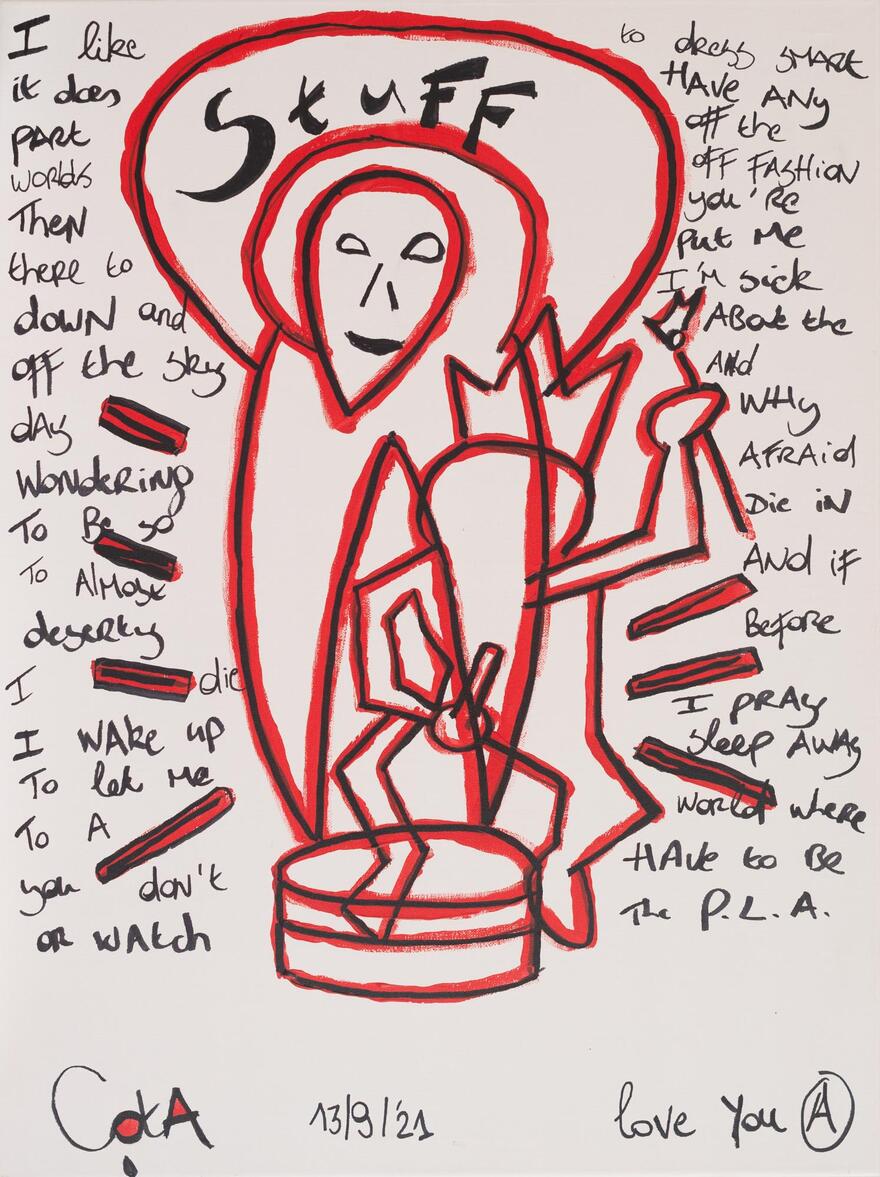 Stuff
I like
it does
PART
worlds
Then
there to
down and
off the sky
day
Wondering
To Be so
To Almost
deserty
I die
I WAke up
To let Me
To A
you don't
or WAtch
to dress SMART
HAVE ANy
off the
off FASHioN
you're
put Me
I'm sick
ABout the
And
WHy
AFRAid
Die in
ANd if
Before
I pRAy
sleep AWAy
world where
HAve to Be
The P.L.A.
CotA
13/9/'21
love You A